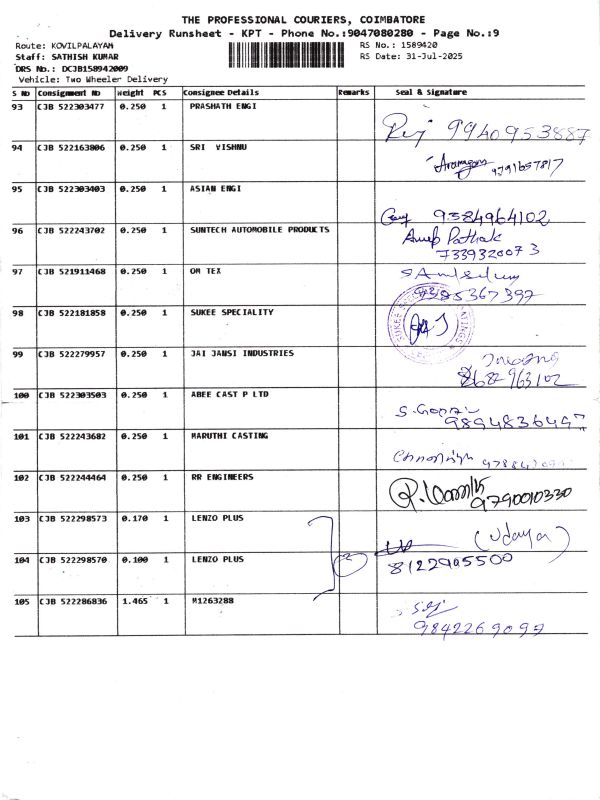 THE PROFESSIONAL COURIERS, COIMBATORE
Delivery Runsheet - KPT - Phone No.:9047080280 - Page No.:9
Route: KOVILPALAYAM RS No.: 1589420
Staff: SATHISH KUMAR RS Date: 31-Jul-2025
DRS No.: DCJB158942009
Vehicle: Two Wheeler Delivery
S No Consignment No Weight PCS Consignee Details Remarks Seal & Signature
93 CJB 522303477 0.250 1 PRASHATH ENGI
9940953887
94 CJB 522163806 0.250 1 SRI VISHNU
9791657817
95 CJB 522303403 0.250 1 ASIAN ENGI
9384964102
96 CJB 522243702 0.250 1 SUNTECH AUTOMOBILE PRODUCTS Anup Pathak
7339320073
97 CJB 521911468 0.250 1 OM TEX
9385367397
98 CJB 522181858 0.250 1 SUKEE SPECIALITY
99 CJB 522279957 0.250 1 JAI JANSI INDUSTRIES
100 CJB 522303503 0.250 1 ABEE CAST P LTD
S. Gopal
101 CJB 522243682 0.250 1 MARUTHI CASTING
102 CJB 522244464 0.250 1 RR ENGINEERS
9790010330
103 CJB 522298573 0.170 1 LENZO PLUS
(Udaya)
104 CJB 522298570 0.100 1 LENZO PLUS 2
8122995500
105 CJB 522286836 1.465 1 M1263288
9842269097